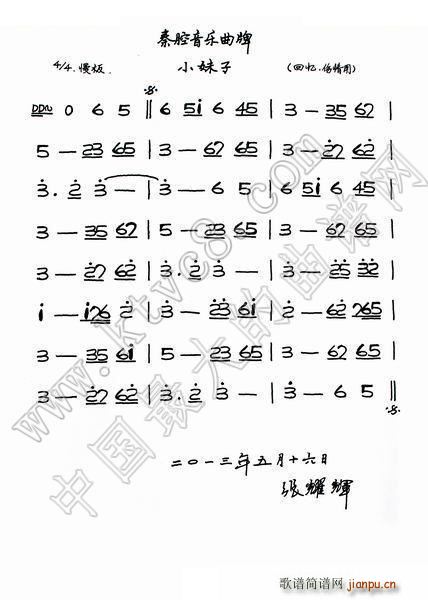 秦腔音乐曲牌
4/4 慢板 小妹子 (回忆、伤情用)
0 6 5 ‖ 6 5i̇ 6 45 | 3 — 35 62 |
5 — 23 65 | 3 — 62 65 | 3̇ — 2̇7 62̇ |
3̇. 2̇ 3̇ — | 3̇ — 6 5 | 6 5i̇ 6 45 |
3 — 35 62 | 5 — 23 65 | 3 — 35 62 |
3̇ — 2̇7 62̇ | 3̇. 2̇ 3̇ — | 3̇ — 2̇5 3̇2̇ |
i̇ — i̇26 2̇ | 3̇ — 2̇3̇ 6i̇ | 2̇ — 62̇ 265 |
3 — 35 6i̇ | 5 — 23 65 | 3 — 62 65 |
3̇ — 2̇7 62̇ | 3̇. 2̇ 3̇ — | 3̇ — 6 5 ‖
二〇一三年五月十六日
张耀辉
www.ktvc8.com
中国最大的曲谱网
歌谱简谱网
jianpu.cn